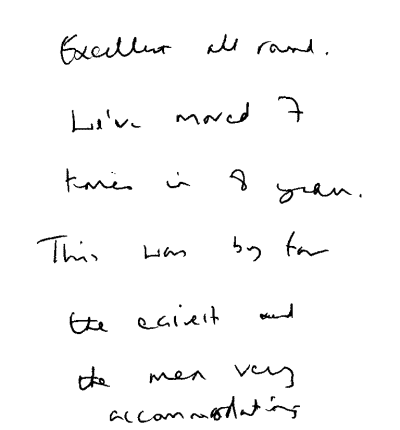 Excellent all round.
We've moved 7
times in 8 years.
This was by far
the easiest and
the men very
accommodating